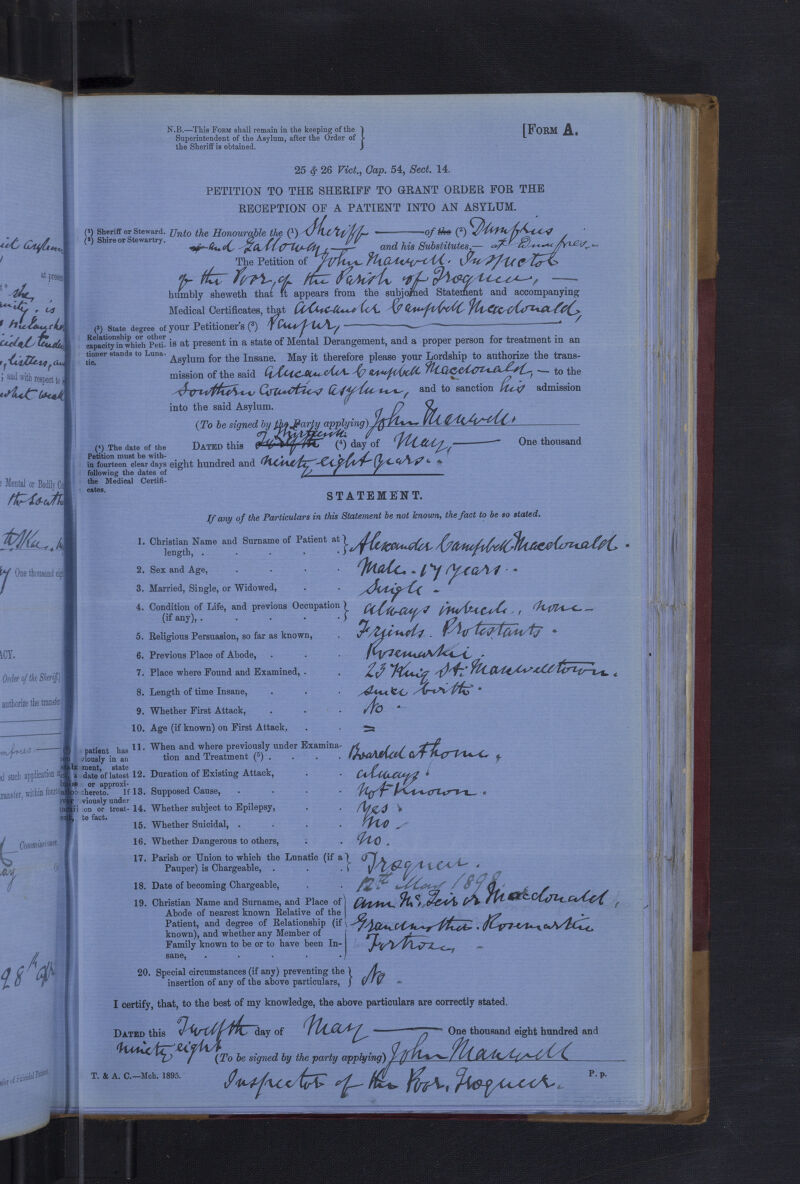 N.B.—This Form shall remain in the keeping of the
Superintendent of the Asylum, after the Order of
the Sheriff is obtained.
[Form A.
25 & 26 Vict., Cap. 54, Sect. 14.
PETITION TO THE SHERIFF TO GRANT ORDER FOR THE
RECEPTION OF A PATIENT INTO AN ASYLUM.
(¹) Sheriff or Steward.
(²) Shire or Stewartry.
Unto the Honourable the (¹) Sheriff — of the (²) Dumfries
and Galloway — and his Substitutes,— at Dumfries.—
The Petition of John Maxwell. Inspector
of the Poor, of the Parish of Troqueer, —
humbly sheweth that it appears from the subjoined Statement and accompanying
Medical Certificates, that Alexander Campbell Macdonald,
(³) State degree of
Relationship or other
capacity in which Peti-
tioner stands to Luna-
tic.
your Petitioner's (³) Pauper, —
is at present in a state of Mental Derangement, and a proper person for treatment in an
Asylum for the Insane. May it therefore please your Lordship to authorize the trans-
mission of the said Alexander Campbell Macdonald, — to the
Southern Counties Asylum, and to sanction his admission
into the said Asylum.
(To be signed by the Party applying) John Maxwell.
Thirteenth
(⁴) The date of the
Petition must be with-
in fourteen clear days
following the dates of
the Medical Certifi-
cates.
Dated this Twelfth (⁴) day of May, — One thousand
eight hundred and ninety eight years.
STATEMENT.
If any of the Particulars in this Statement be not known, the fact to be so stated.
1. Christian Name and Surname of Patient at
length, . Alexander Campbell Macdonald.
2. Sex and Age, Male. 17 years.
3. Married, Single, or Widowed, Single.
4. Condition of Life, and previous Occupation
(if any), . always imbecile, none
5. Religious Persuasion, so far as known, Friends. Protestants.
6. Previous Place of Abode, Rosemarkie.
7. Place where Found and Examined, 23 King St. Maxwelltown.
8. Length of time Insane, since birth.
9. Whether First Attack, No
10. Age (if known) on First Attack, =
11. When and where previously under Examina-
tion and Treatment (⁵) . Boarded at home,
12. Duration of Existing Attack, always
13. Supposed Cause, Not known.
14. Whether subject to Epilepsy, Yes
15. Whether Suicidal, No
16. Whether Dangerous to others, No.
17. Parish or Union to which the Lunatic (if a
Pauper) is Chargeable, . Troqueer.
18. Date of becoming Chargeable, 12th May 1898
19. Christian Name and Surname, and Place of
Abode of nearest known Relative of the
Patient, and degree of Relationship (if
known), and whether any Member of
Family known to be or to have been In-
sane,
Macdonald,
Grandmother. Rosemarkie
Fortrose
20. Special circumstances (if any) preventing the
insertion of any of the above particulars, No
I certify, that, to the best of my knowledge, the above particulars are correctly stated.
Dated this Twelfth day of May — One thousand eight hundred and
ninety eight
(To be signed by the party applying) John Maxwell
T. & A. C.—Mch. 1895.
P. p.
Inspector of the Poor, Troqueer.